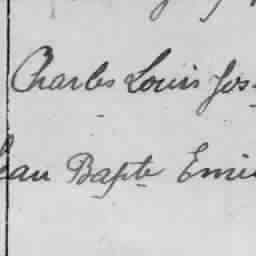 Charles Louis Jos
ean Bapte Emi